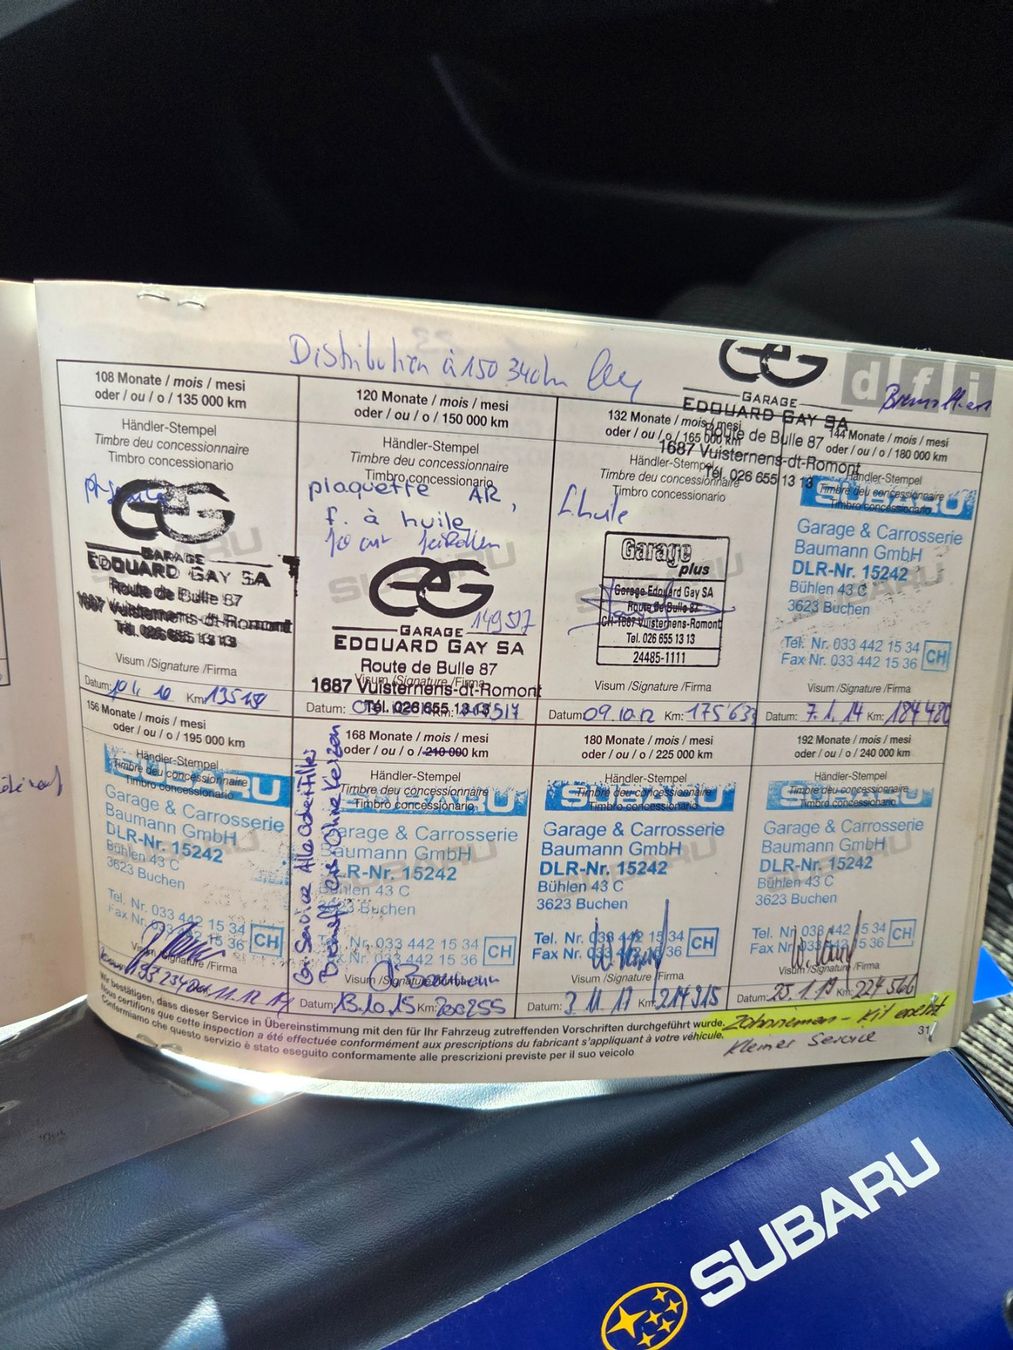 Distribution à 150 340km
GARAGE
EDOUARD GAY SA
Route de Bulle 87
1687 Vuisternens-dt-Romont
Tél. 026 655 13 13
dfi
108 Monate / mois / mesi
oder / ou / o / 135 000 km
Händler-Stempel
Timbre du concessionnaire
Timbro concessionario
GARAGE
EDOUARD GAY SA
Route de Bulle 87
1687 Vuisternens-dt-Romont
Tél. 026 655 13 13
Visum /Signature /Firma
Datum: Km:
120 Monate / mois / mesi
oder / ou / o / 150 000 km
Händler-Stempel
Timbre deu concessionnaire
Timbro concessionario
plaquette AR,
f. à huile
149517
GARAGE
EDOUARD GAY SA
Route de Bulle 87
Visum /Signature /Firma
1687 Vuisternens-dt-Romont
Tél. 026 655 13 13
Datum:
132 Monate / mois / mesi
oder / ou / o / 165 000 km
Händler-Stempel
Timbre deu concessionnaire
Timbro concessionario
f.huile
Garage
plus
Garage Edouard Gay SA
Route de Bulle 87
CH-1687 Vuisternens-Romont
Tel. 026 655 13 13
24485-1111
Visum /Signature /Firma
Datum: 09.10.12 Km:
144 Monate / mois / mesi
oder / ou / o / 180 000 km
Händler-Stempel
SUBARU
Timbre deu concessionnaire
Timbro concessionario
Garage & Carrosserie
Baumann GmbH
DLR-Nr. 15242
Bühlen 43 C
3623 Buchen
Tel. Nr. 033 442 15 34
Fax Nr. 033 442 15 36
CH
Visum /Signature /Firma
Datum: 7.1.14 Km: 184 480
156 Monate / mois / mesi
oder / ou / o / 195 000 km
Händler-Stempel
SUBARU
Timbre deu concessionnaire
Timbro concessionario
Garage & Carrosserie
Baumann GmbH
DLR-Nr. 15242
Bühlen 43 C
3623 Buchen
Tel. Nr. 033 442 15 34
Fax Nr. 033 442 15 36
CH
Visum /Signature /Firma
168 Monate / mois / mesi
oder / ou / o / 210 000 km
Händler-Stempel
SUBARU
Timbre deu concessionnaire
Timbro concessionario
Gr. Service Alle
Garage & Carrosserie
Baumann GmbH
DLR-Nr. 15242
Bühlen 43 C
3623 Buchen
Tel. Nr. 033 442 15 34
Fax Nr. 033 442 15 36
CH
Visum /Signature /Firma
Datum: 13.10.15 Km: 200255
180 Monate / mois / mesi
oder / ou / o / 225 000 km
Händler-Stempel
SUBARU
Timbre deu concessionnaire
Timbro concessionario
Garage & Carrosserie
Baumann GmbH
DLR-Nr. 15242
Bühlen 43 C
3623 Buchen
Tel. Nr. 033 442 15 34
Fax Nr. 033 442 15 36
CH
Visum /Signature /Firma
Datum: 3.11.17 Km: 214915
192 Monate / mois / mesi
oder / ou / o / 240 000 km
Händler-Stempel
SUBARU
Timbre deu concessionnaire
Timbro concessionario
Garage & Carrosserie
Baumann GmbH
DLR-Nr. 15242
Bühlen 43 C
3623 Buchen
Tel. Nr. 033 442 15 34
Fax Nr. 033 442 15 36
CH
Visum /Signature /Firma
Datum: 25.1.19 Km: 224 566
Wir bestätigen, dass dieser Service in Übereinstimmung mit den für Ihr Fahrzeug zutreffenden Vorschriften durchgeführt wurde.
Nous certifions que cette inspection a été effectuée conformément aux prescriptions du fabricant s'appliquant à votre véhicule.
Confermiamo che questo servizio è stato eseguito conformemente alle prescrizioni previste per il suo veicolo
Zahnriemen-Kit ersetzt
Kleiner Service
31
SUBARU